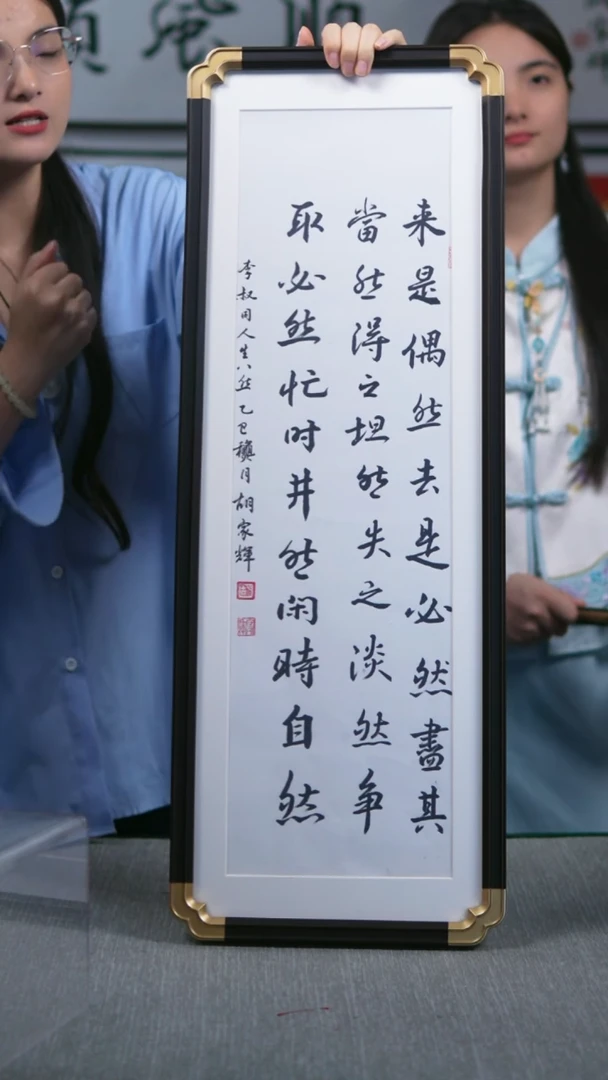 来是偶然去是必然盡其
當然得之坦然失之淡然争
取必然忙时井然闲時自然
李叔同人生八然 乙巳 月 胡家輝
風